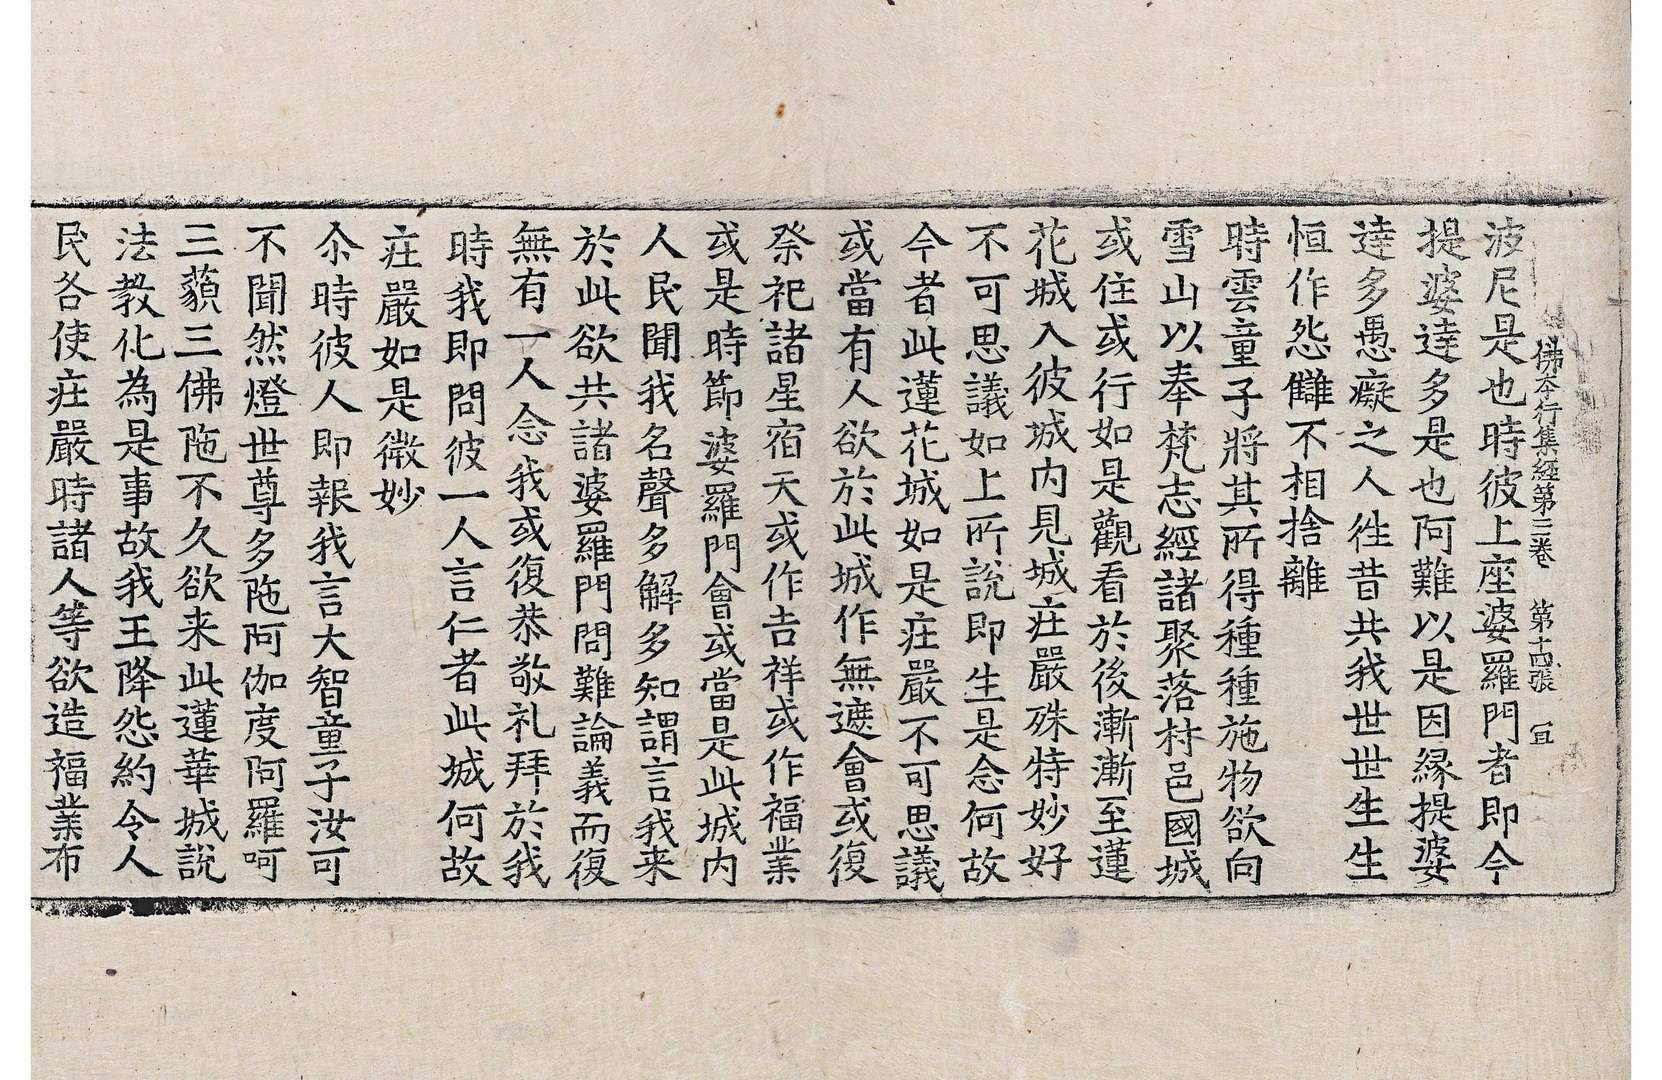 佛夲行集經第三卷　第十四張　冝
波尼是也時彼上座婆羅門者即今
提婆達多是也阿難以是因縁提婆
達多愚癡之人徃昔共我世世生生
恒作怨讎不相捨離
時雲童子將其所得種種施物欲向
雪山以奉梵志經諸聚落村邑國城
或住或行如是觀看於後漸漸至蓮
花城入彼城内見城庄嚴殊特妙好
不可思議如上所說即生是念何故
今者此蓮花城如是庄嚴不可思議
或當有人欲於此城作無遮會或復
祭祀諸星宿天或作吉祥或作福業
或是時節婆羅門會或當是此城内
人民聞我名聲多解多知謂言我来
於此欲共諸婆羅門問難論義而復
無有一人念我或復恭敬礼拜於我
時我即問彼一人言仁者此城何故
庄嚴如是微妙
尒時彼人即報我言大智童子汝可
不聞然燈世尊多陁阿伽度阿羅呵
三藐三佛陁不久欲来此蓮華城說
法教化為是事故我王降怨約令人
民各使庄嚴時諸人等欲造福業布